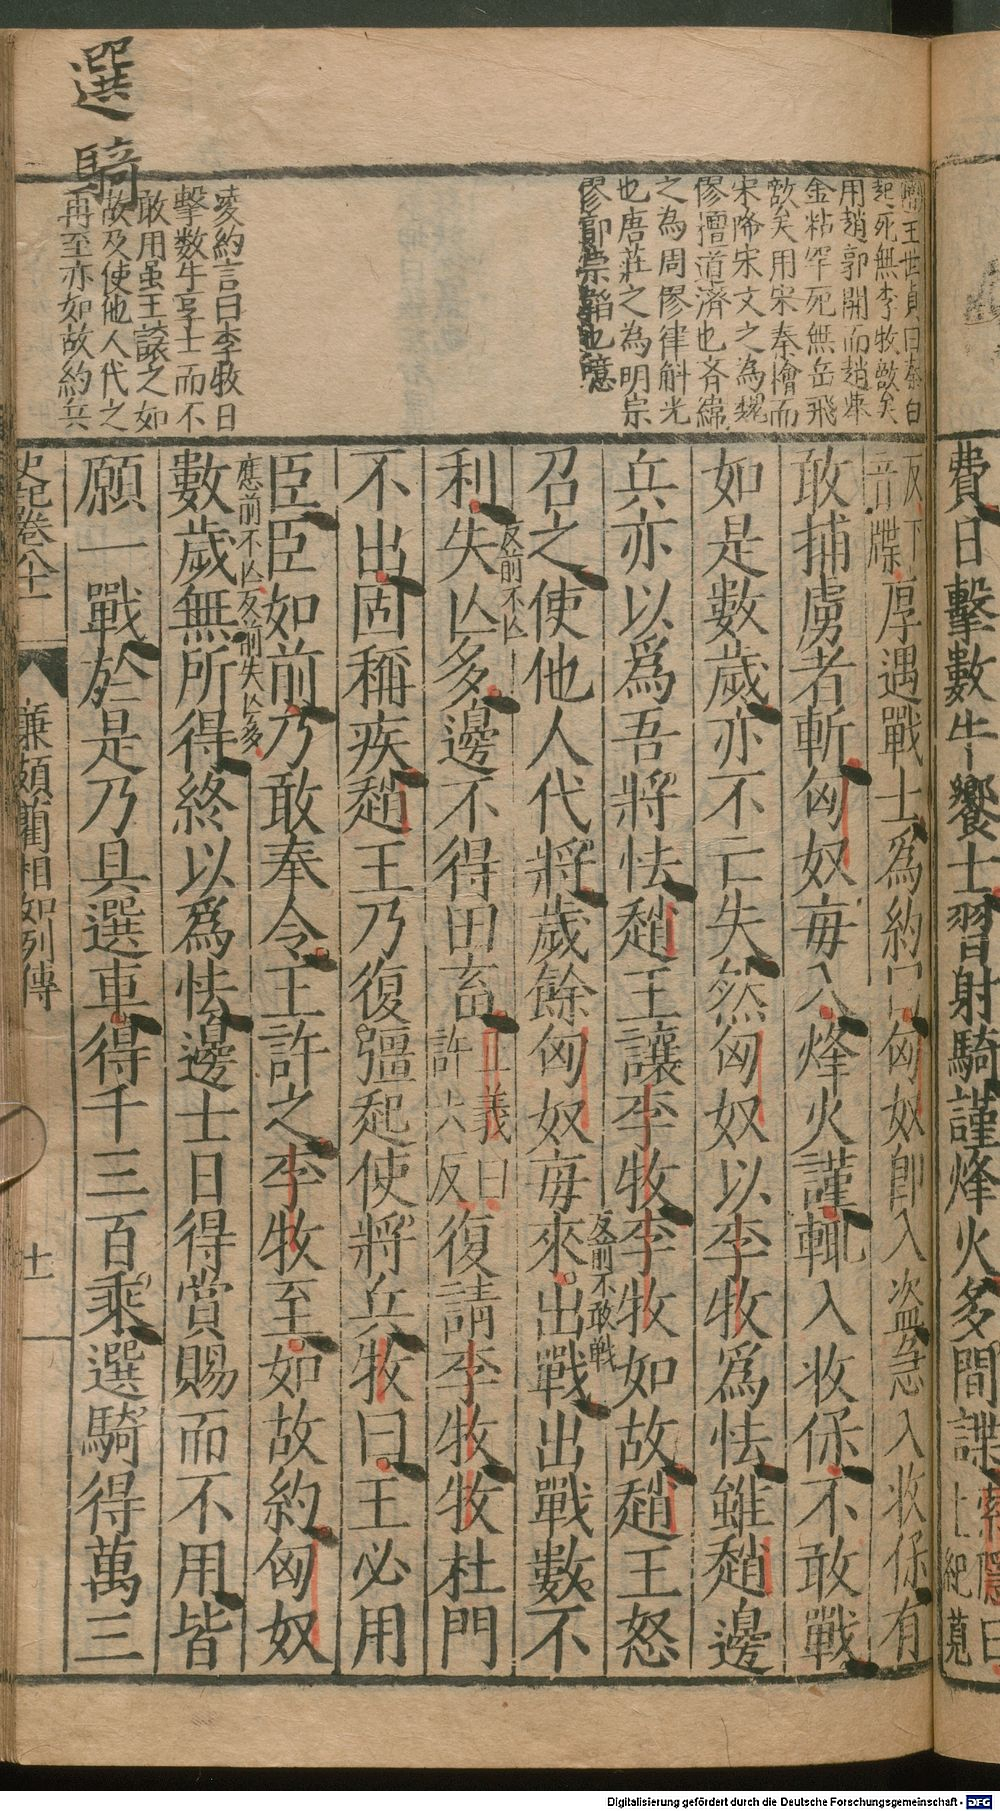 選騎
費日擊數牛饗士習射騎謹烽火多間諜索隱曰上紀莧
反下音牒厚遇戰士爲約曰匈奴卽入盜急入收保有
敢捕虜者斬匈奴每入烽火謹輒入收保不敢戰
如是數歲亦不亡失然匈奴以李牧爲怯雖趙邊
兵亦以爲吾將怯趙王讓李牧李牧如故趙王怒
反前不敢戰
召之使他人代將歲餘匈奴每來出戰出戰數不
反前不亾
利失亾多邊不得田畜正義曰許六反復請李牧牧杜門
不出固稱疾趙王乃復彊起使將兵牧曰王必用
臣臣如前乃敢奉令王許之李牧至如故約匈奴
應前不亾反前失亾多
數歲無所得終以爲怯邊士日得賞賜而不用皆
願一戰於是乃具選車得千三百乘選騎得萬三
史記卷八十一 廉頗藺相如列傳 十一
王世貞曰秦白
起死無李牧敵矣
用趙郭開而趙牧
金粘罕死無岳飛
敵矣用宋秦檜而
宋降宋文之為魏
僇檀道濟也齊緯
之為周僇律斛光
也唐莊之為明宗
僇郭崇韜也噫
凌約言曰李牧日
擊數牛享士而不
敢用虽王讓之如
故及使他人代之
再至亦如故約兵
Digitalisierung gefördert durch die Deutsche Forschungsgemeinschaft - DFG